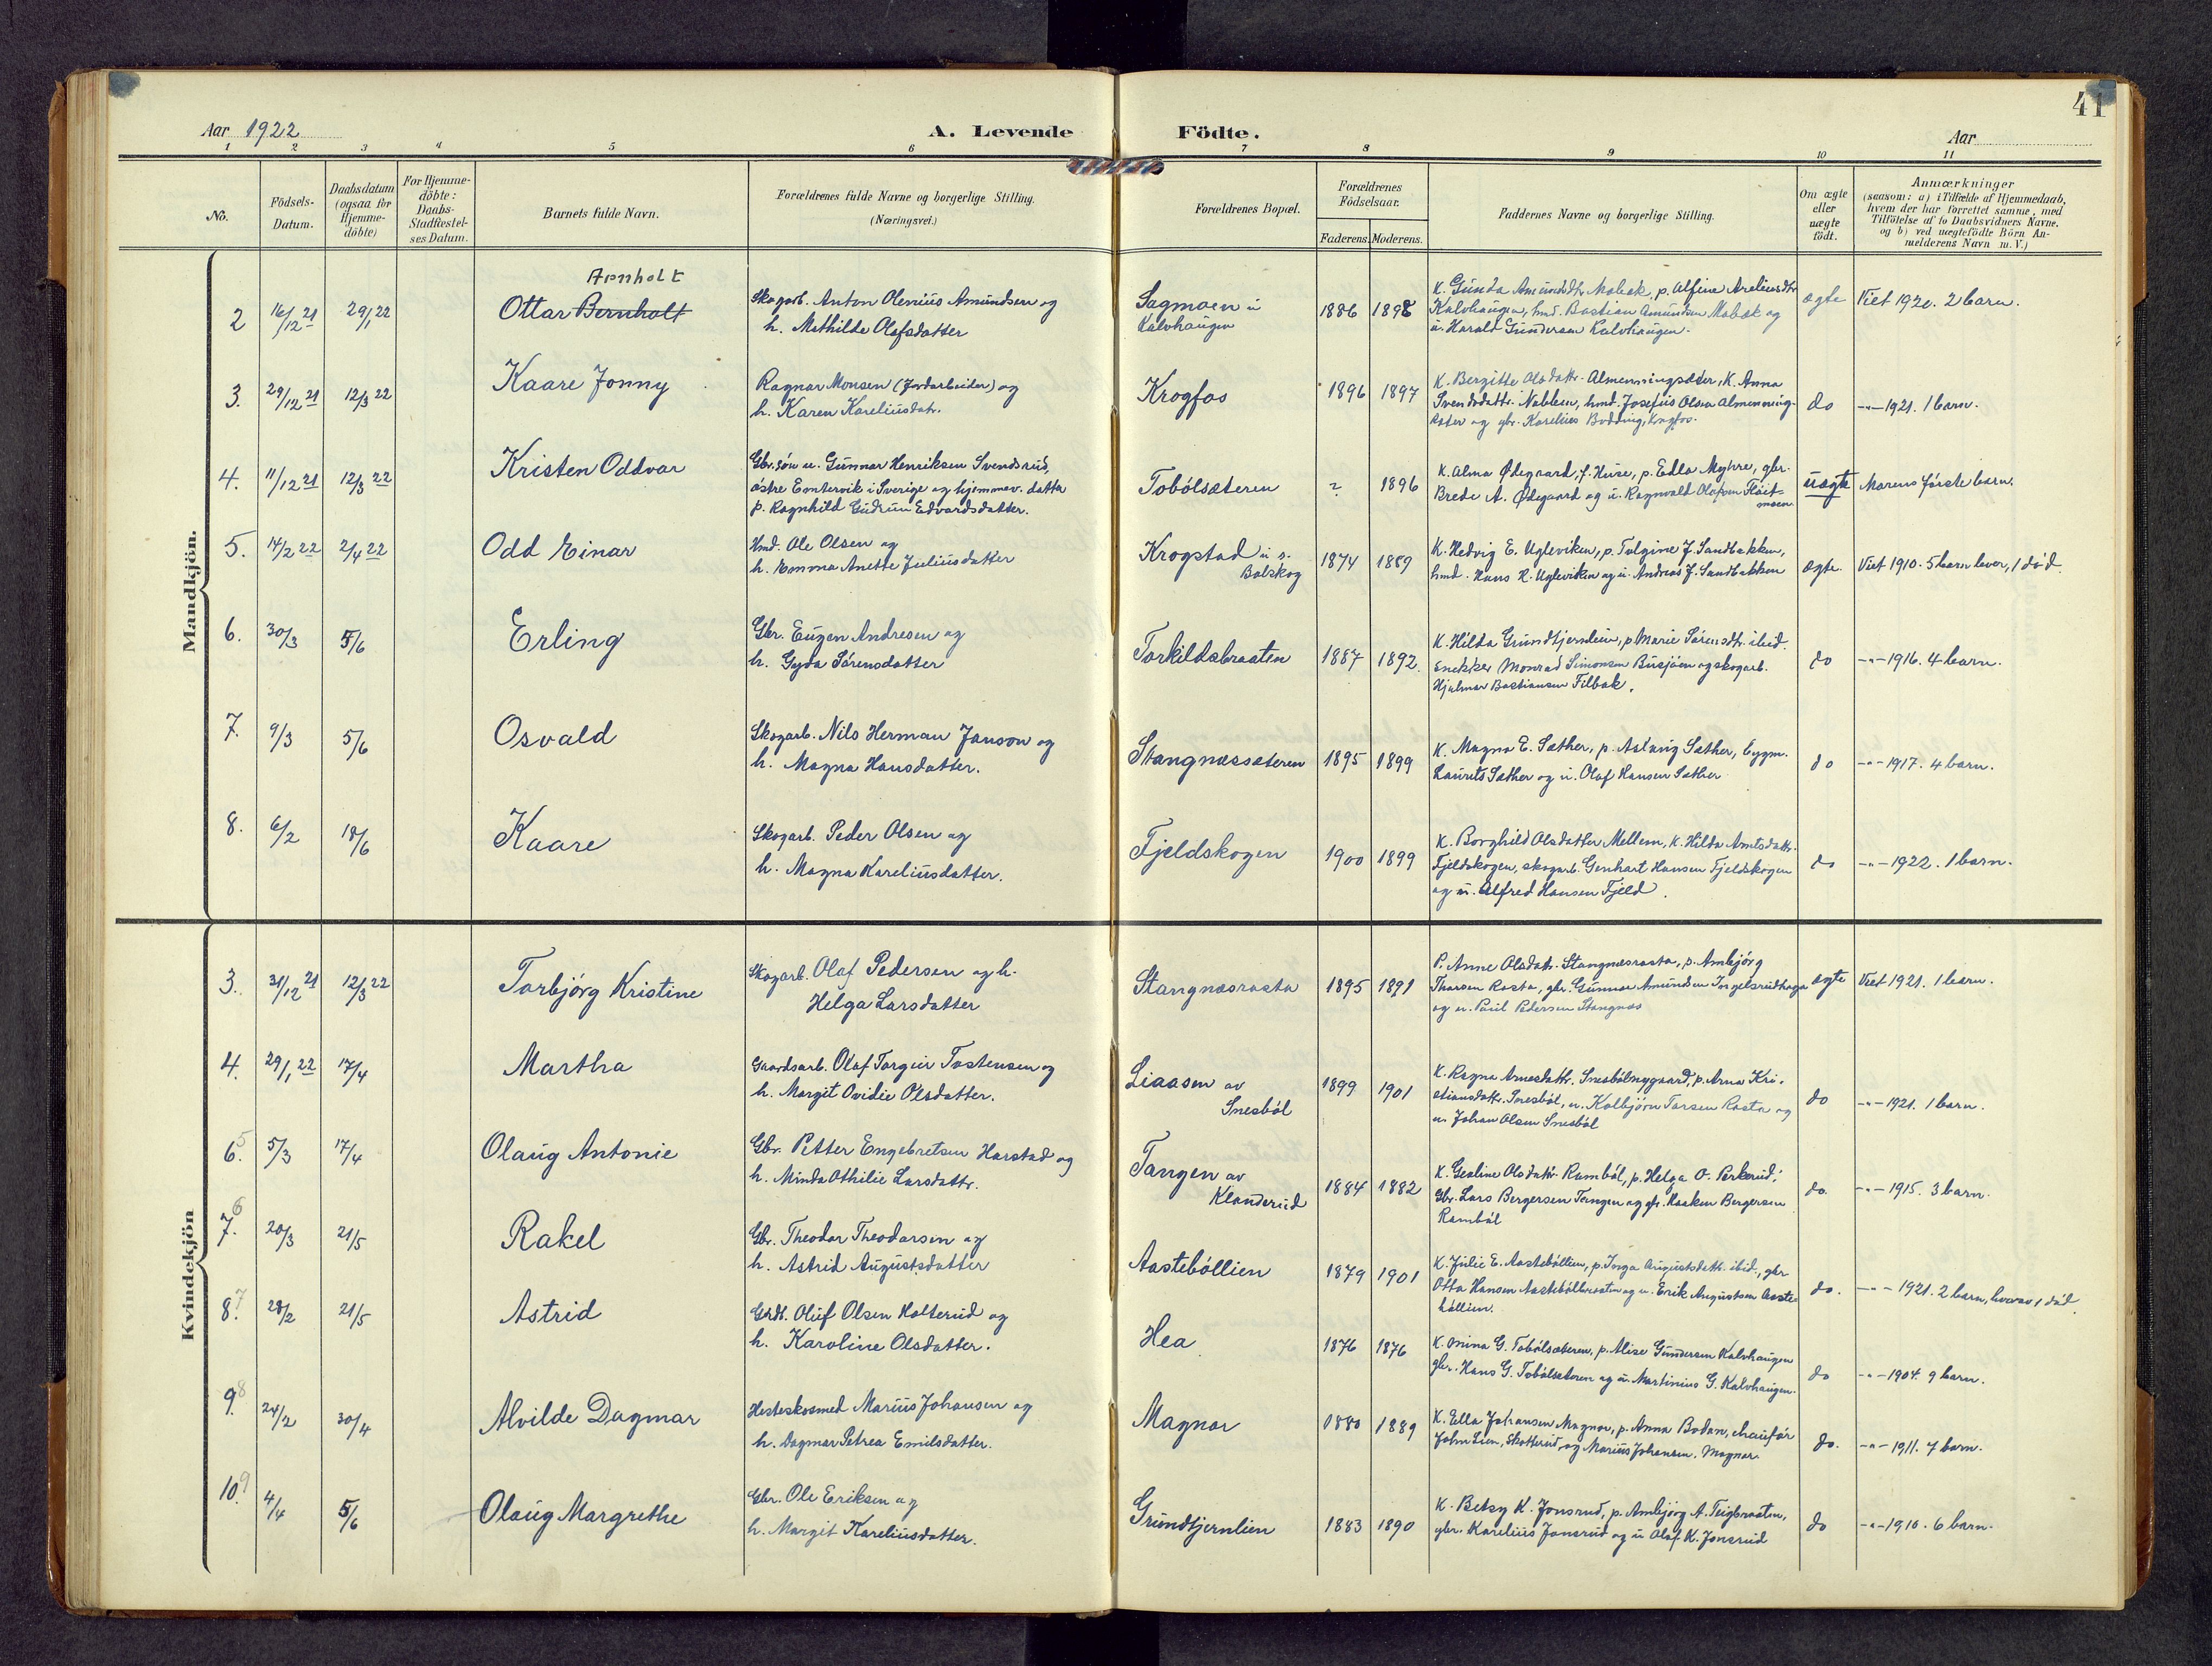 41
Aar 1922
A. Levende Födte.
Aar
1 2 3 4 5 6 7 8 9 10 11
No.
Födsels-
Datum.
Daabsdatum
(ogsaa for
Hjemme-
döbte)
For Hjemme-
döbte:
Daabs-
Stadfæstel-
ses Datum.
Barnets fulde Navn.
Forældrenes fulde Navne og borgerlige Stilling.
(Næringsvei.)
Forældrenes Bopæl.
Forældrenes
Födselsaar.
Faderens. Moderens.
Faddernes Navne og borgerlige Stilling.
Om ægte
eller
uægte
födt.
Anmærkninger
(saasom: a) i Tilfælde af Hjemmedaab,
hvem der har forrettet samme, med
Tilföielse af to Daabsvidners Navne,
og b) ved uægtefödte Börn An-
melderens Navn m. V.)
Mandkjön.
Arnholt
2 16/12 21 29/1 22 Ottar Bernholt
Skogarb. Anton Olenius Amundsen og
h. Mathilde Olafsdatter
Sagmoen u
Kalvhaugen
1886 1898
K. Gunda Amundsdtr. Mobæk, p. Alfine Areliusdtr
Kalvhaugen, hmd. Bastian Amundsen Mobæk og
u. Harald Gundersen Kalvhaugen.
ægte Viet 1920. 2 barn.
3. 29/12 21 12/3 22 Kaare Jonny
Ragnar Monsen (Jordarbeider) og
h. Karen Kareliusdatr.
Krogfos
1896 1897
K. Bergitte Olsdattr. Almenningsæter, K. Anna
Svendsdattr. Noblen, hmd. Josefus Olsen Almenning-
sæter og gbr. Karelius Bodding, Krogfos.
do -"- 1921. 1 barn.
4. 11/12 21 12/3 22 Kristen Oddvar
Gbr.sön u. Gunnar Henriksen Svendsrud,
östre Emtervik i Sverige og hjemmev. datter
p. Ragnhild Gudrun Edvardsdatter.
Tobölsæteren
? 1896
K. Alma Ødegaard, f. Huse, p. Edla Myhre, gbr.
Brede A. Ødegaard og u. Ragnvald Olafsen Flöit-
moen
uægte Morens förste barn.
5. 14/2 22 2/4 22 Odd Einar
Hmd. Ole Olsen og
h. Emma Anette Juliusdatter
Krogstad u s.
Bölskog
1874 1889
K. Hedvig E. Ugleviken, p. Tolgine J. Sandbakken,
hmd. Hans H. Ugleviken og u. Andreas J. Sandbakken
ægte. Viet 1910. 5 barn lever, 1 död.
6. 30/3 5/6 Erling
Gbr. Eugen Andresen og
h. Gyda Sörensdatter
Torkildsbraaten
1887 1892.
K. Hilda Grundtjernlien, p. Marie Sörensdtr. ibid.
Snekker Monrad Simonsen Busjöen og skogarb.
Hjalmar Bastiansen Filbæk.
do -"- 1916. 4 barn.
7. 9/3 5/6 Osvald
Skogarb. Nils Herman Janson og
h. Magna Hansdatter.
Stangnæssæteren
1895 1899
K. Magna E. Sæther, p. Aslaug Sæther, bygm.
Laurits Sæther og u. Olaf Hansen Sæther
do -"- 1917. 4 barn.
8. 6/2 18/6 Kaare
Skogarb. Peder Olsen og
h. Magna Kareliusdatter.
Fjeldskogen
1900 1899
K. Borghild Olsdatter Mellem, K. Hilda Arntsdattr.
Fjeldskogen, skogarb. Genhart Hansen Fjeldskogen
og u. Alfred Hansen Fjeld.
do -"- 1922. 1 barn.
Kvindekjön
3. 31/12 21 12/3 22 Torbjörg Kristine
Skogarb. Olaf Pedersen og h.
Helga Larsdatter
Stangnæsrasta
1895 1891
P. Anne Olsdatr. Stangnæsrasta, p. Ambjörg
Thorsen Rasta, gbr. Gunnar Amundsen Ingelsrudhaga
og u. Paul Pedersen Stangnæs
ægte Viet 1921. 1 barn.
4. 29/1 22 17/4 Martha
Gaardsarb. Olaf Torgeir Tostensen og
h. Margit Ovidie Olsdatter.
Liaasen av
Snesböl
1899 1901
K. Ragna Arnesdattr. Snesbölnygaard, p. Arna Kri-
stiansdattr. Snesböl, u. Kolbjörn Tarsen Rasta og
u. Johan Olsen Snesböl
do -"- 1921. 1 barn.
6. 5 5/3 17/4 Olaug Antonie
Gbr. Petter Engebretsen Harstad og
h. Minda Othilie Larsdattr.
Tangen av
Klanderud
1884 1882
K. Gealine Olsdattr. Ramböl, p. Helga O. Perkerud,
Gbr. Lars Bergersen Tangen og gbr. Haaken Bergersen
Ramböl
do. -"- 1915. 3 barn.
7. 6 20/3 21/5 Rakel
Gbr. Theodor Theodorsen og
h. Astrid Augustsdatter
Aastebóllien
1879 1901
K. Julie E. Aastebóllien, p. Inga Augustsdattr. ibid., gbr
Otto Hansen Aastebölbraaten og u. Erik Augustsen Aaste-
böllien.
do. -"- 1921. 2 barn, hvorav 1 död.
8. 7 28/2 21/5 Astrid
Grdb. Oluf Olsen Holterud og
h. Karoline Olsdatter.
Hea
1876 1876
K. Mina G. Tobölsæteren, p. Alise Gundersen Kalvhaugen
gbr. Hans G. Tobölsæteren og u. Martinius G. Kalvhaugen.
do -"- 1904. 9 barn.
9. 8 24/2 30/4 Alvilde Dagmar
Hesteskosmed Marius Johansen og
h. Dagmar Petrea Emilsdatter.
Magnor
1880 1889
K. Ella Johansen Magnor, p. Anna Bodan, chauför
John Lien, Skotterud, og Marius Johansen, Magnor.
do. -"- 1911. 7 barn.
10. 9 4/4 5/6 Olaug Margrethe
Gbr. Ole Eriksen og
h. Margit Kareliusdatter.
Grundtjernlien
1883 1890
K. Betsy K. Jonsrud, p. Ambjörg A. Teigbraaten,
gbr. Karelius Jonsrud og u Olaf K. Jonsrud
do -"- 1910. 6 barn.